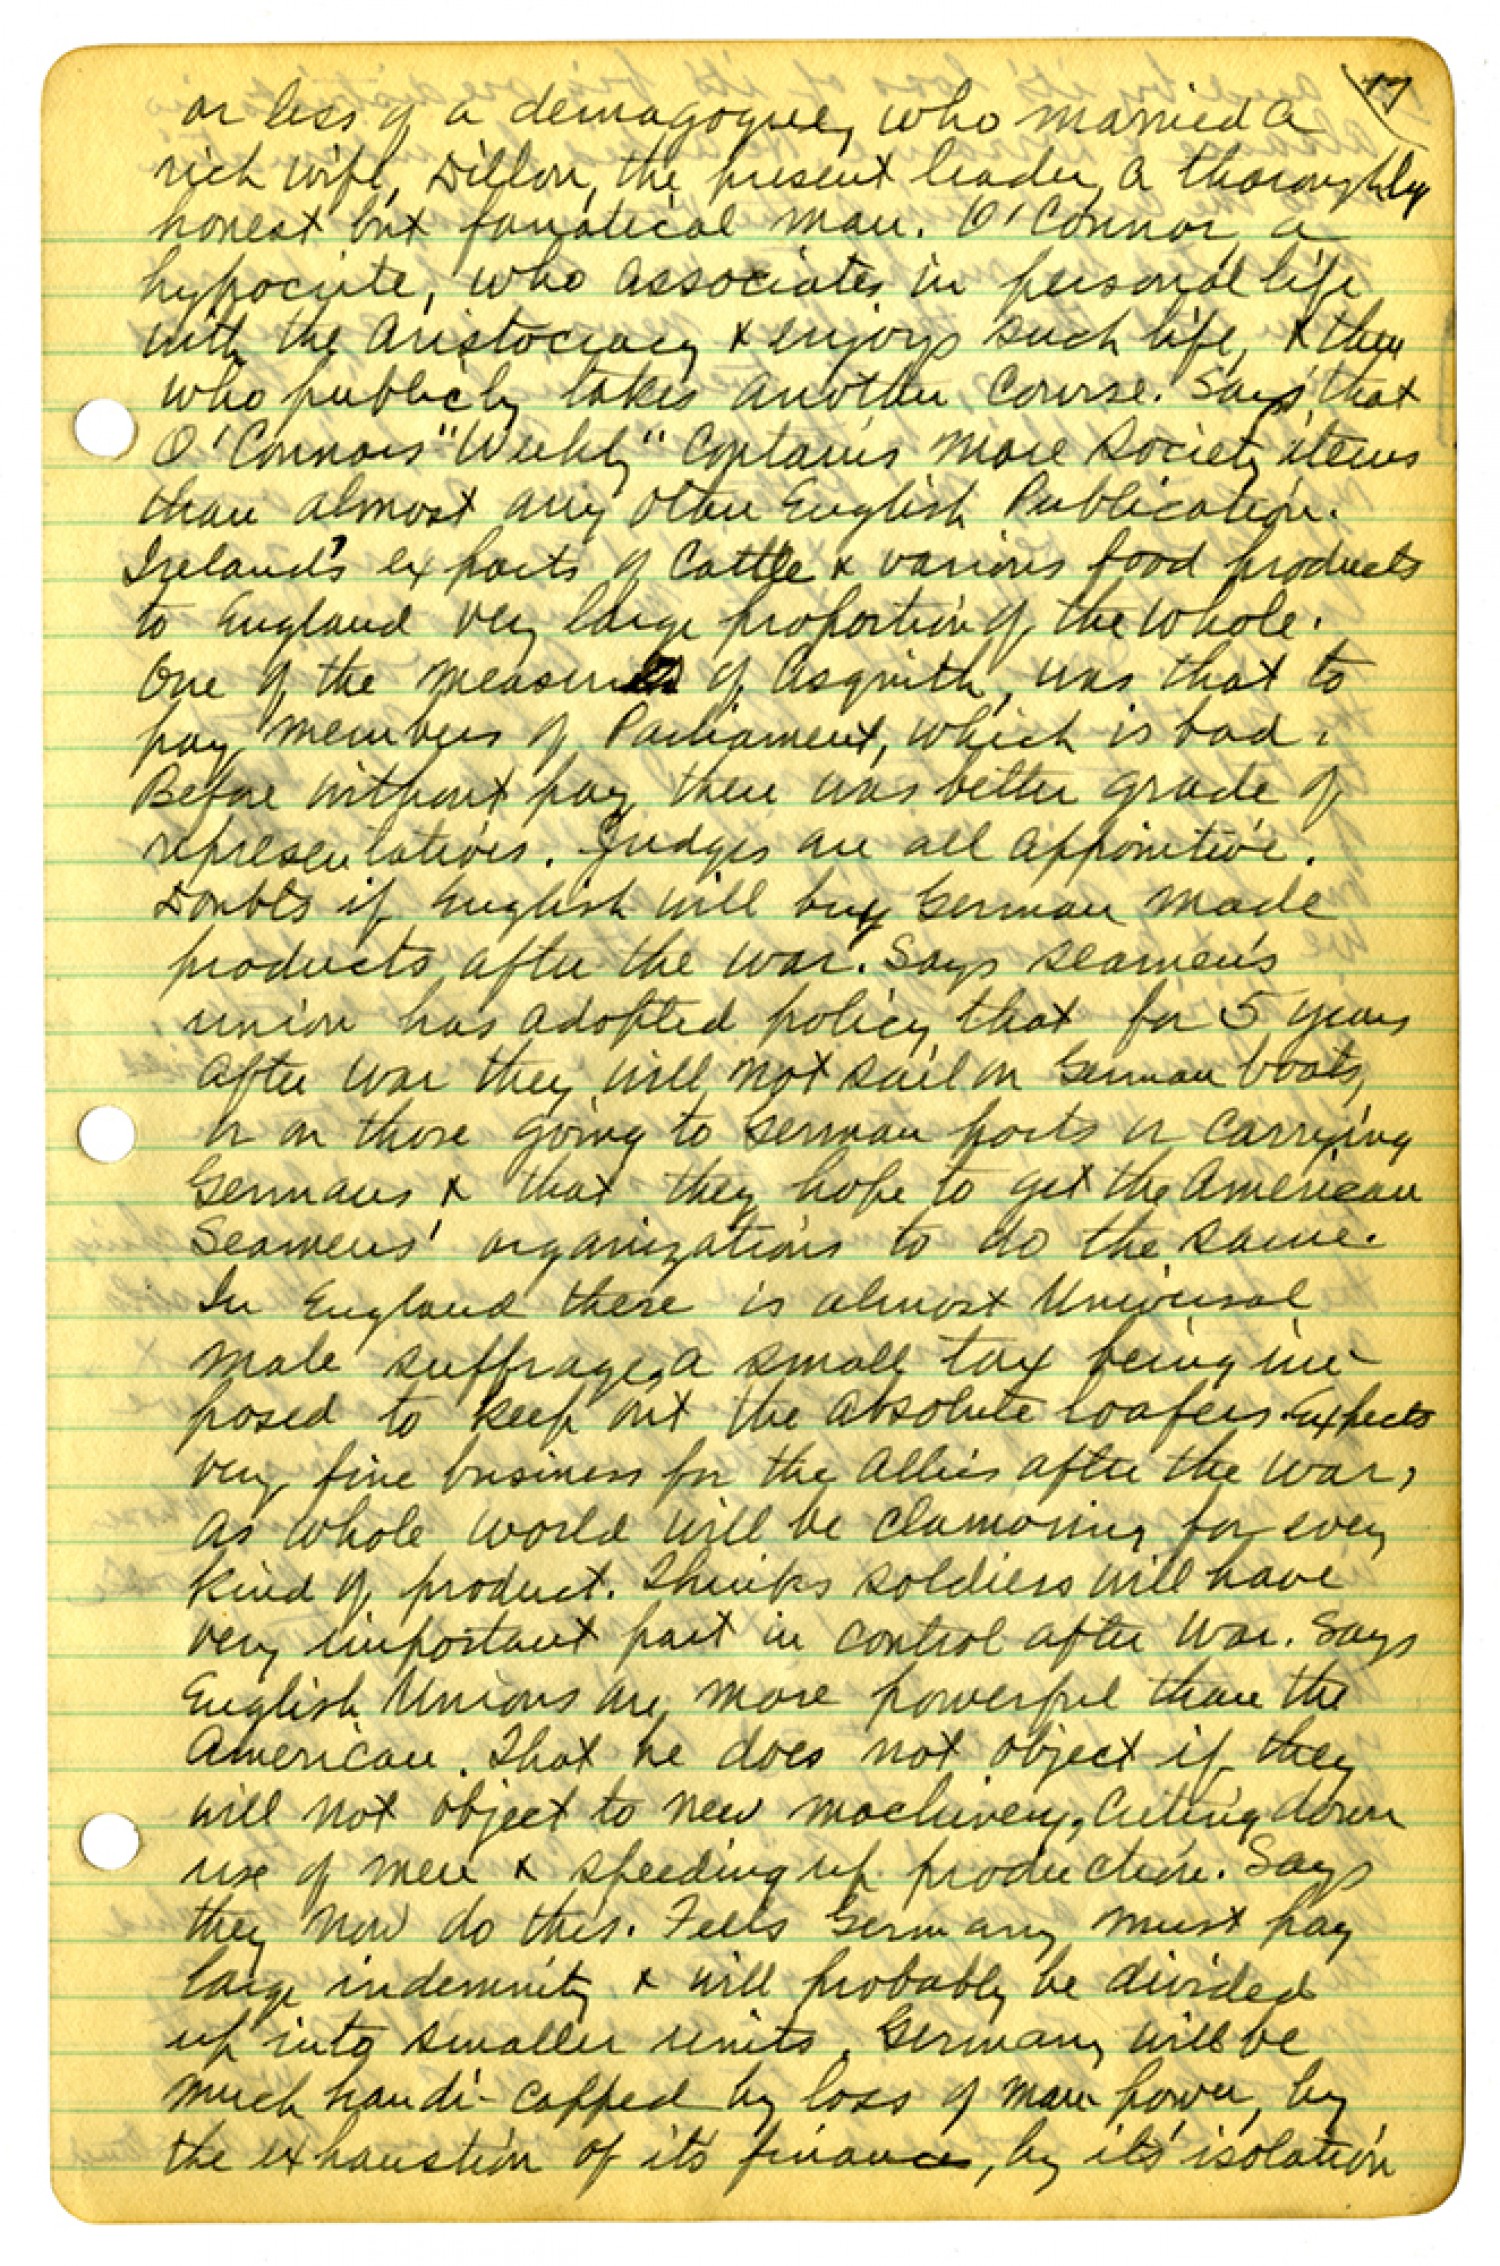 17
or less of a demagogue, who married a
rich wife, Dillon, the present leader, a thoroughly
honest but fanatical man. O'Connor, a
hypocrite, who associates in personal life
with the Aristocracy & enjoys such life, & then
who publicly takes another course. Says that
O'Connors "Weekly" Contains more Society items
than almost any other English Publication.
Ireland's exports of Cattle & various food products
to England very large proportion of the whole.
One of the measures of Asquith, was that to
pay members of Parliament, which is bad.
Before without pay there was better grade of
representatives. Judges are all appointive.
Doubts if English will buy German made
products after the war. Says seamen's
union has adopted policy that for 5 years
after war they will not sail on German boats,
or on those going to German ports or carrying
Germans & that they hope to get the American
Seamens' organizations to do the same.
In England there is almost Universal
male suffrage, a small tax being im-
posed to keep out the absolute loafers. Expects
very fine business for the Allies after the war,
as whole world will be clamoring for every
kind of product. Thinks soldiers will have
very important part in control after war. Says
English Unions are more powerful than the
American. That he does not object if they
will not object to new machinery, cuting down
use of men & speeding up production. Says
they now do this. Feels Germany must pay
large indemnity & will probably be divided
up into smaller units. Germany will be
much handi-capped by loss of man power, by
the exhaustion of its finances, by its isolation